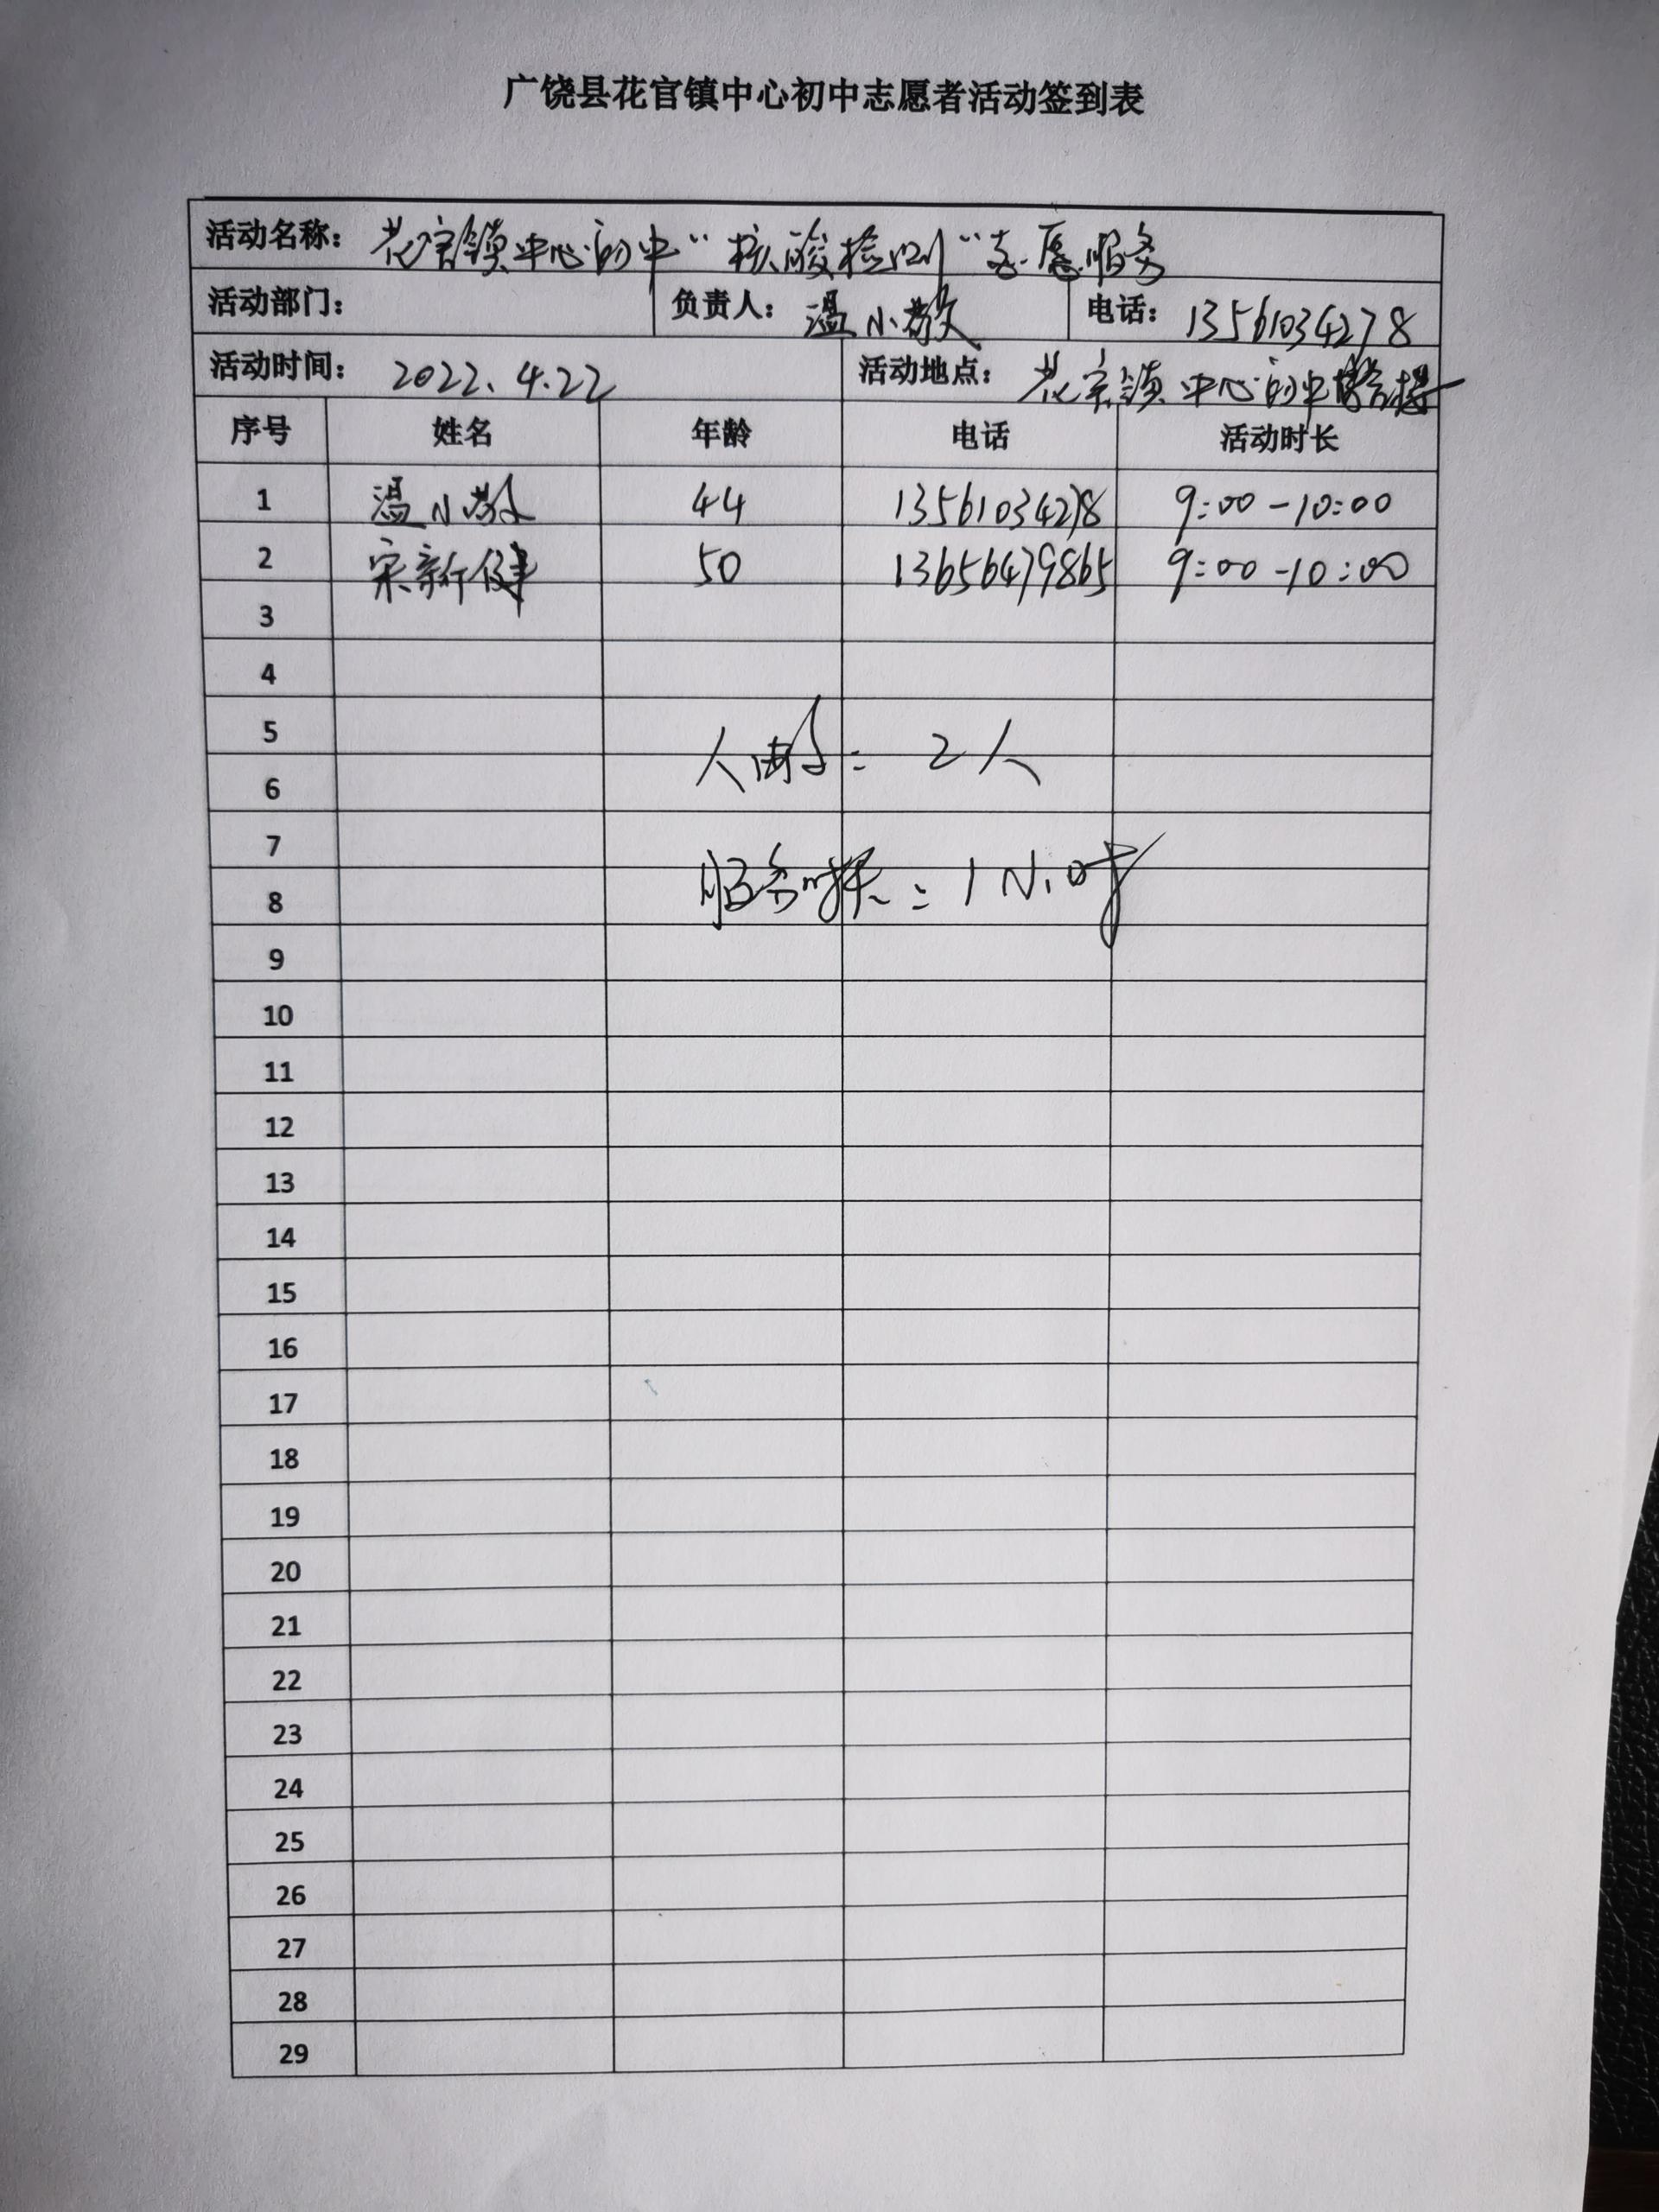 广饶县花官镇中心初中志愿者活动签到表
活动名称： 花官镇中心初中“核酸检测”志愿服务
活动部门： 负责人： 温小敬 电话： 13561034278
活动时间： 2022.4.22 活动地点： 花官镇中心初中餐厅
序号 姓名 年龄 电话 活动时长
1 温小敬 44 13561034278 9:00-10:00
2 宋新健 50 13656479865 9:00-10:00
3
4
5
人数: 2人
6
7
服务时长: 1小时
8
9
10
11
12
13
14
15
16
17
18
19
20
21
22
23
24
25
26
27
28
29